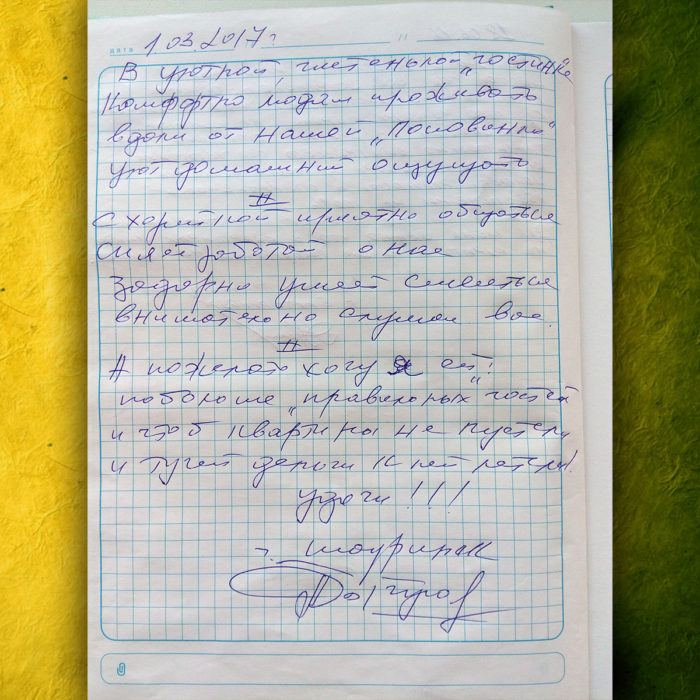 дата 1.03.2017г
В уютной, чистенькой "гостинке"
Комфортно людям проживать
вдали от нашей
уют домашний ощущать
//
С хозяйкой приятно общаться
Сияет заботой о нас
Задорно умеет смеяться
внимательно слушая вас.
//
А пожелать хочу я ей:
побольше "правильных" гостей
и чтоб квартиры не пустели
и тучей деньги к ней летели!
удачи!!!
г.